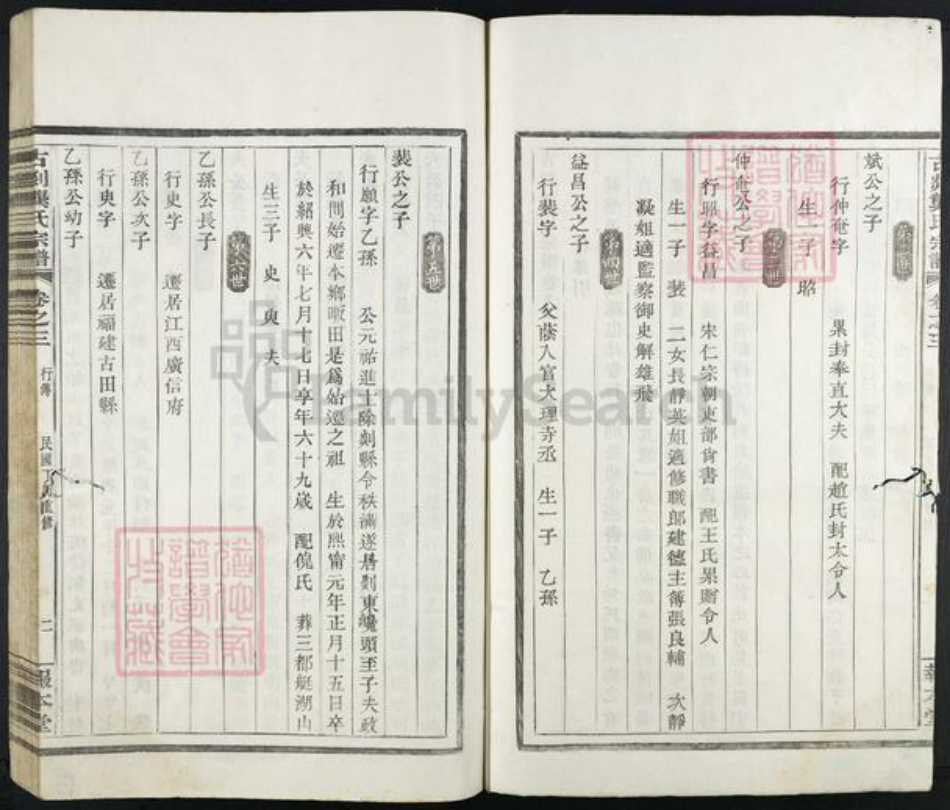 第二世
斌公之子
行仲奄字 累封奉直大夫 配趙氏封太令人
生一子 昭
第三世
仲奄公之子
行昭字益昌 宋仁宗朝吏部尙書 配王氏累贈令人
生一子 裴 二女長靜英姐適修職郎建德主簿張良輔 次靜
凝姐適監察御史解雄飛
第四世
益昌公之子
行裴字 父蔭入官大理寺丞 生一子 乙孫
第五世
裴公之子
行願字乙孫 公元祐進士除剡縣令秩滿遂居剡東 頭至子夫政
和間始遷本鄉 田是爲始遷之祖 生於熙甯元年正月十五日卒
於紹興六年七月十七日享年六十九歲 配 氏 葬三都艇湖山
生三子 史 㬰 夫
第六世
乙孫公長子
行史字 遷居江西廣信府
乙孫公次子
行㬰字 遷居福建古田縣
乙孫公幼子
古剡 氏宗譜 卷之三 行傳 民國丁 重修 二 報本堂
FamilySearch